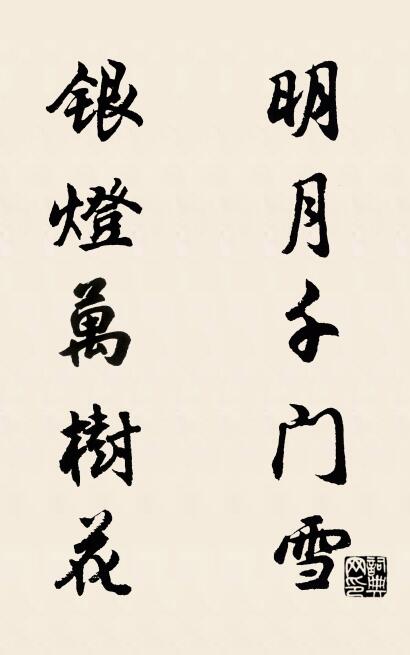 明月千门雪
銀燈萬樹花
詞典网印